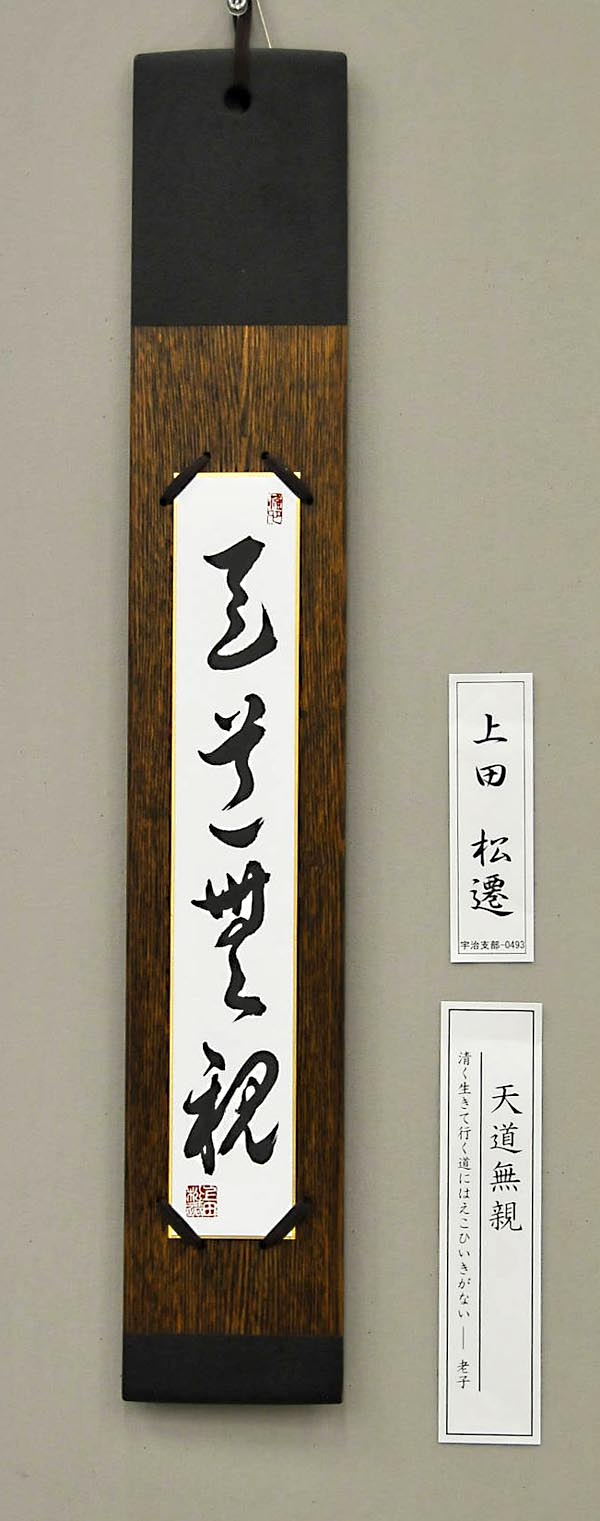 天道無親
上田 松遷
宇治支部-0493
天道無親
清く生きて行く道にはえこひいきがない ── 老子